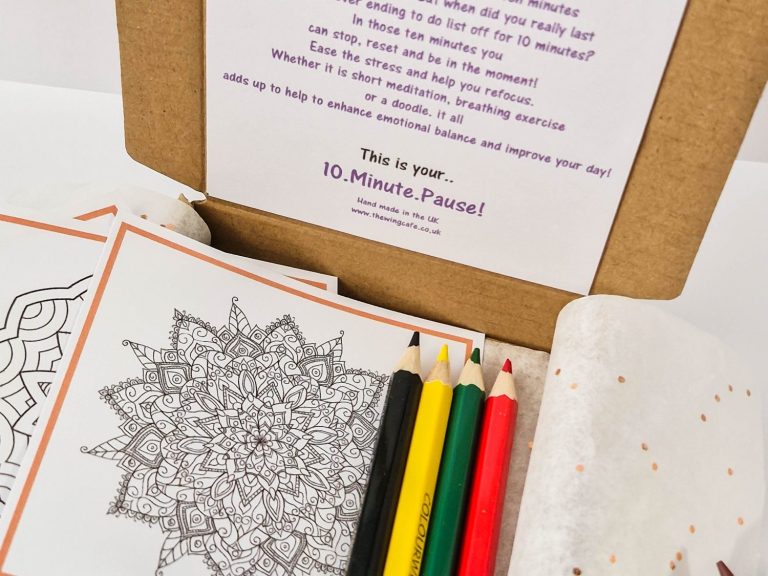 ten minutes
but when did you really last
ver ending to do list off for 10 minutes?
In those ten minutes you
can stop, reset and be in the moment!
Ease the stress and help you refocus.
Whether it is short meditation, breathing exercise
or a doodle. it all
adds up to help to enhance emotional balance and improve your day!
This is your..
10.Minute.Pause!
Hand made in the UK
www.thewingcafe.co.uk
COLOURW